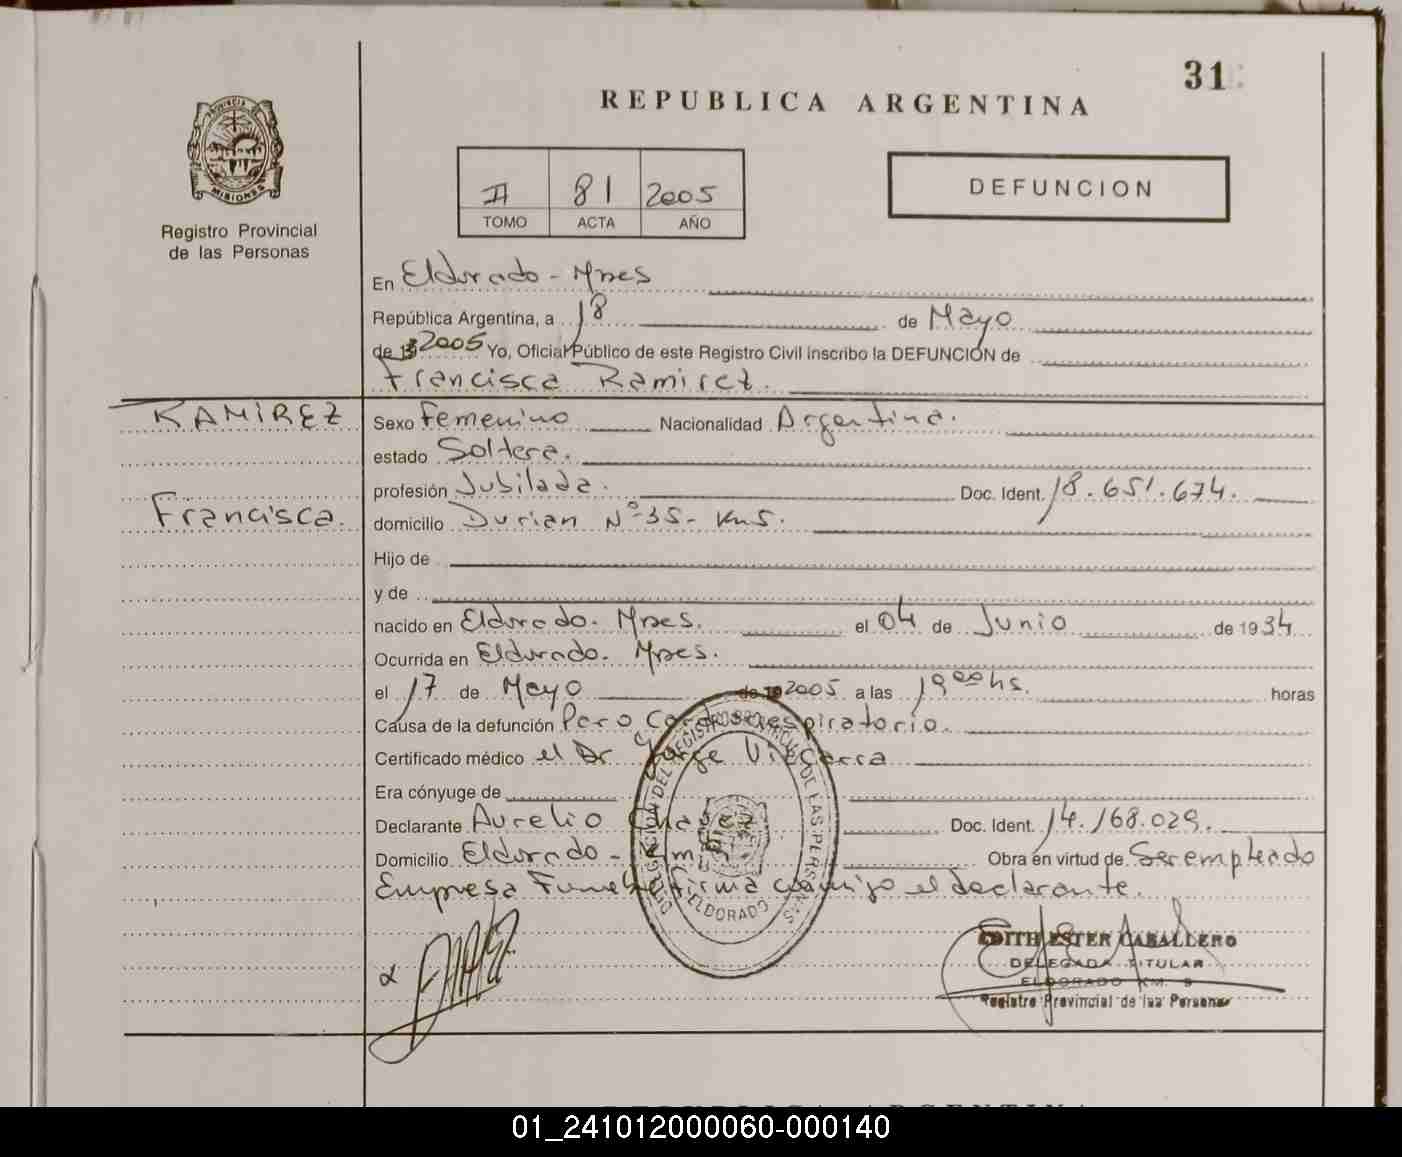 31
REPUBLICA ARGENTINA
PROVINCIA DE MISIONES
Registro Provincial
de las Personas
II 81 2005
TOMO ACTA AÑO
DEFUNCION
En Eldorado - Mnes
República Argentina, a 18 de Mayo
de 19 2005 Yo, Oficial Público de este Registro Civil inscribo la DEFUNCION de
Francisca Ramirez.
RAMIREZ
Francisca.
Sexo Femenino Nacionalidad Argentina.
estado Soltera.
profesión Jubilada. Doc. Ident. 18.651.674.
domicilio Durian Nº 35- Km 5.
Hijo de
y de
nacido en Eldorado. Mnes. el 04 de Junio de 1934
Ocurrida en Eldorado. Mnes.
el 17 de Mayo de 19 2005 a las 19 00 hs. horas
Causa de la defunción Paro Cardiorespiratorio.
Certificado médico el Dr. Jorge
Era cónyuge de
Declarante Aurelio Doc. Ident. 14.168.029.
Domicilio Eldorado - Obra en virtud de Ser empleado
Empresa firma conmigo el declarante.
DELEGACION DEL REGISTRO PROVINCIAL DE LAS PERSONAS
ELDORADO
EDITH ESTER CABALLERO
DELEGADA TITULAR
ELDORADO KM. 9
Registro Provincial de las Personas
REPUBLICA ARGENTINA
01_241012000060-000140